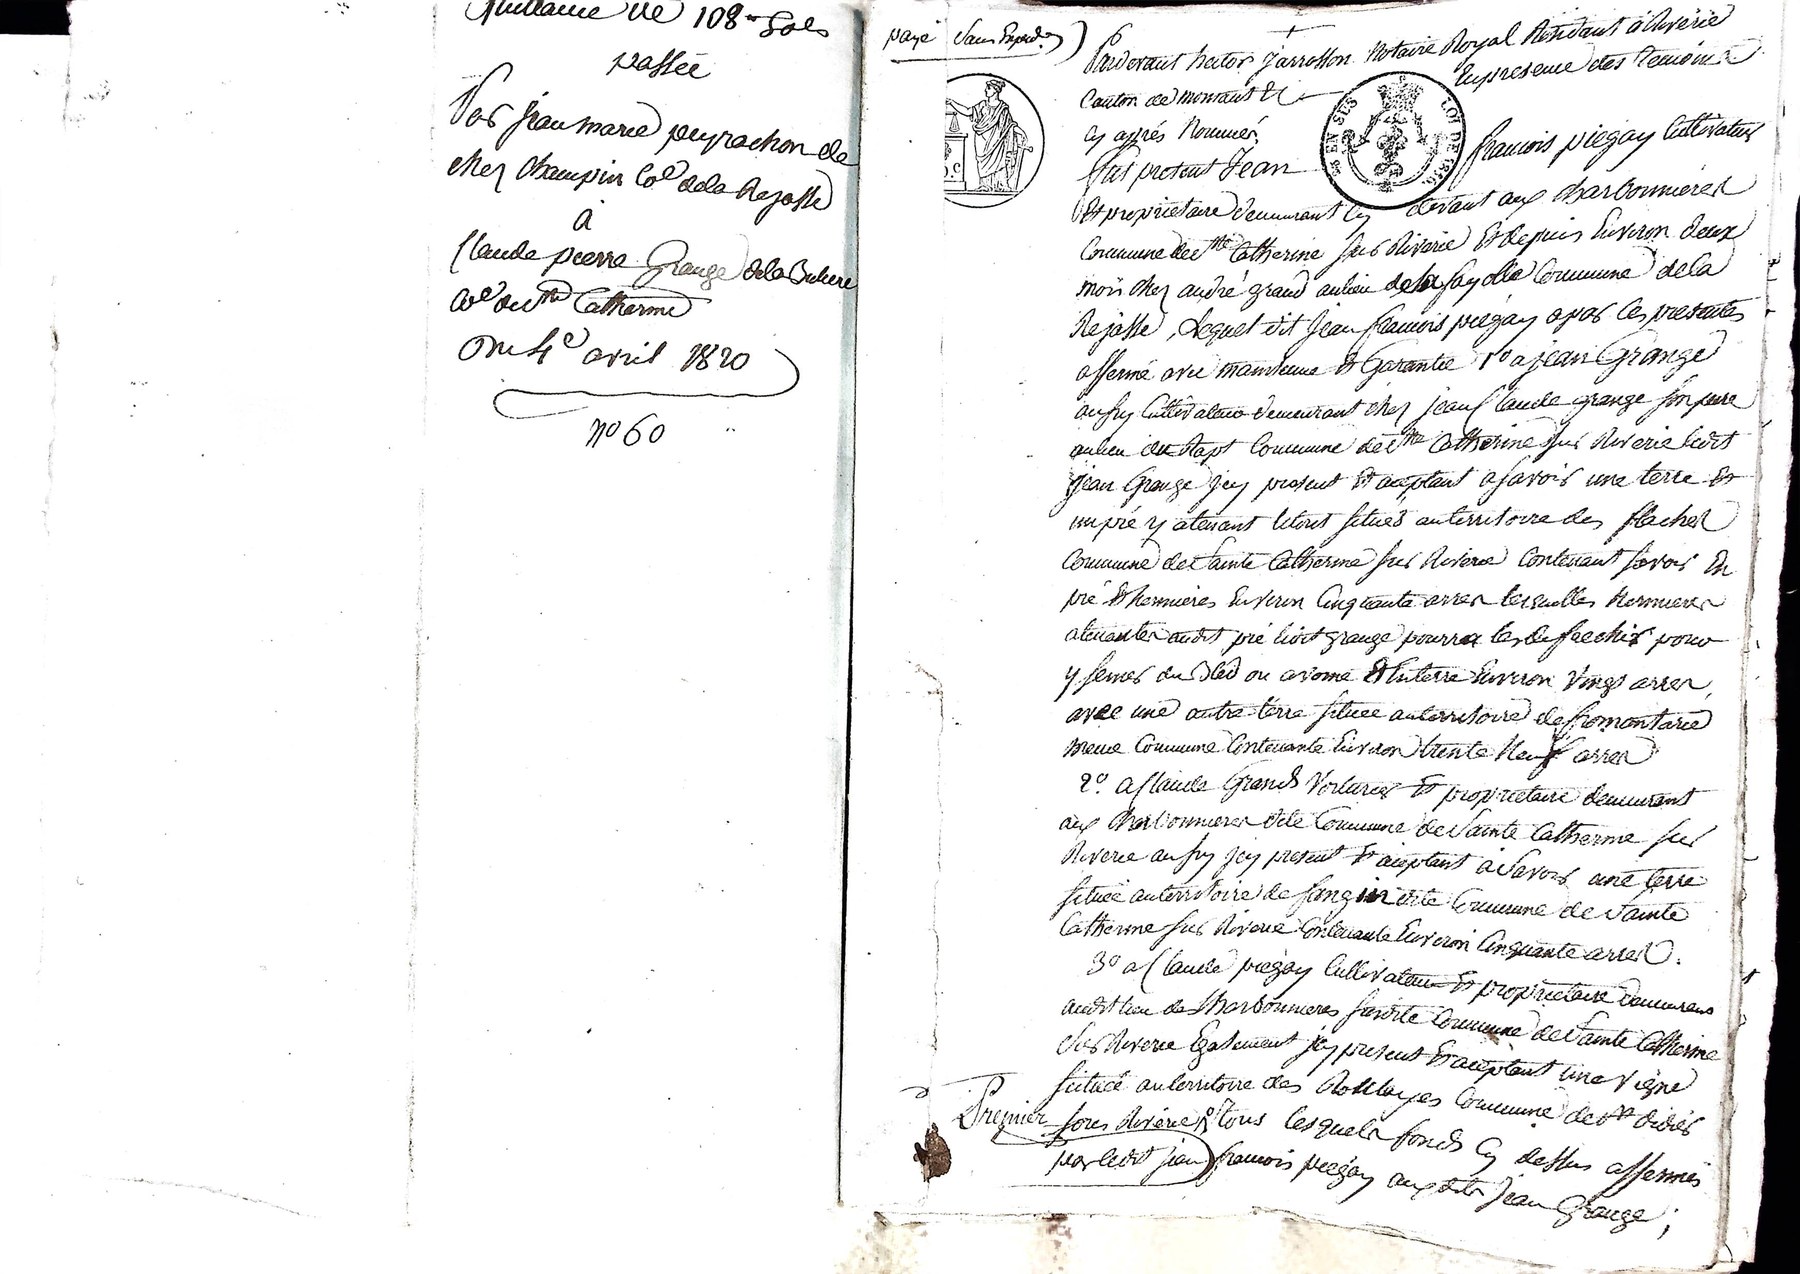 Quittance de 108 # Sols
passée
Par jean marie peyrachon de
chez Champin Coe de la Rajasse
à
Claude pierre Grange de la Buliere
Coe de Ste Catherine
Du 4e avril 1820
No 60
payé Sans Exped.on
Pardevant hector Jarrosson Notaire Royal Résidant à Riverie
Canton de mornant & En presence des temoins
cy après Nommés
fut présent Jean françois piégay Cultivateur
Et proprietaire demeurant cy devant aux charbonnieres
Commune de Ste Catherine sur Riverie Et depuis Environ deux
mois chez andré grand au lieu de la fayolle Commune de la
Rajasse, Lequel dit Jean françois piégay a par ces presentes
affermé avec maintenue & Garantie 1o a jean Grange
aussy Cultivateur demeurant chez jean Claude grange son pere
au lieu du Rapt Commune de Ste Catherine sur Riverie ledit
jean Grange jcy present Et aceptant a Savoir une terre Et
un pré y atenant letout situés auterritoire des flaches
Commune de Sainte Catherine sur Riverie Contenant savoir En
pré & hermieres Environ Cinquante arres lesquelles hermieres
atenantes audit pré ledit grange pourra les deffrechir pour
y semer du Bled ou avoine & En terre Environ vingt arres,
avec une autre terre située auterritoire de fromontarie
meme Commune Contenante Environ trente Neuf arres
2o. a Claude Grand Voiturier Et proprietaire demeurant
aux charbonnieres dite Commune de Sainte Catherine sur
Riverie aussy jcy present Et aceptant a Savoir une terre
située auterritoire de sangin dite Commune de Sainte
Catherine sur Riverie Contenante Environ Cinquante arres.
3o a Claude piégay Cultivateur Et proprietaire demeurant
audit lieu des charbonnieres susdite Commune de Sainte Catherine
sur Riverie Egalement jcy present Et aceptant une vigne
située au territoire des Rollayes Commune de St didier
Premier sous Riverie, tous lesquels fonds Cy dessus affermés
par ledit jean françois piégay auxdits Jean Grange;